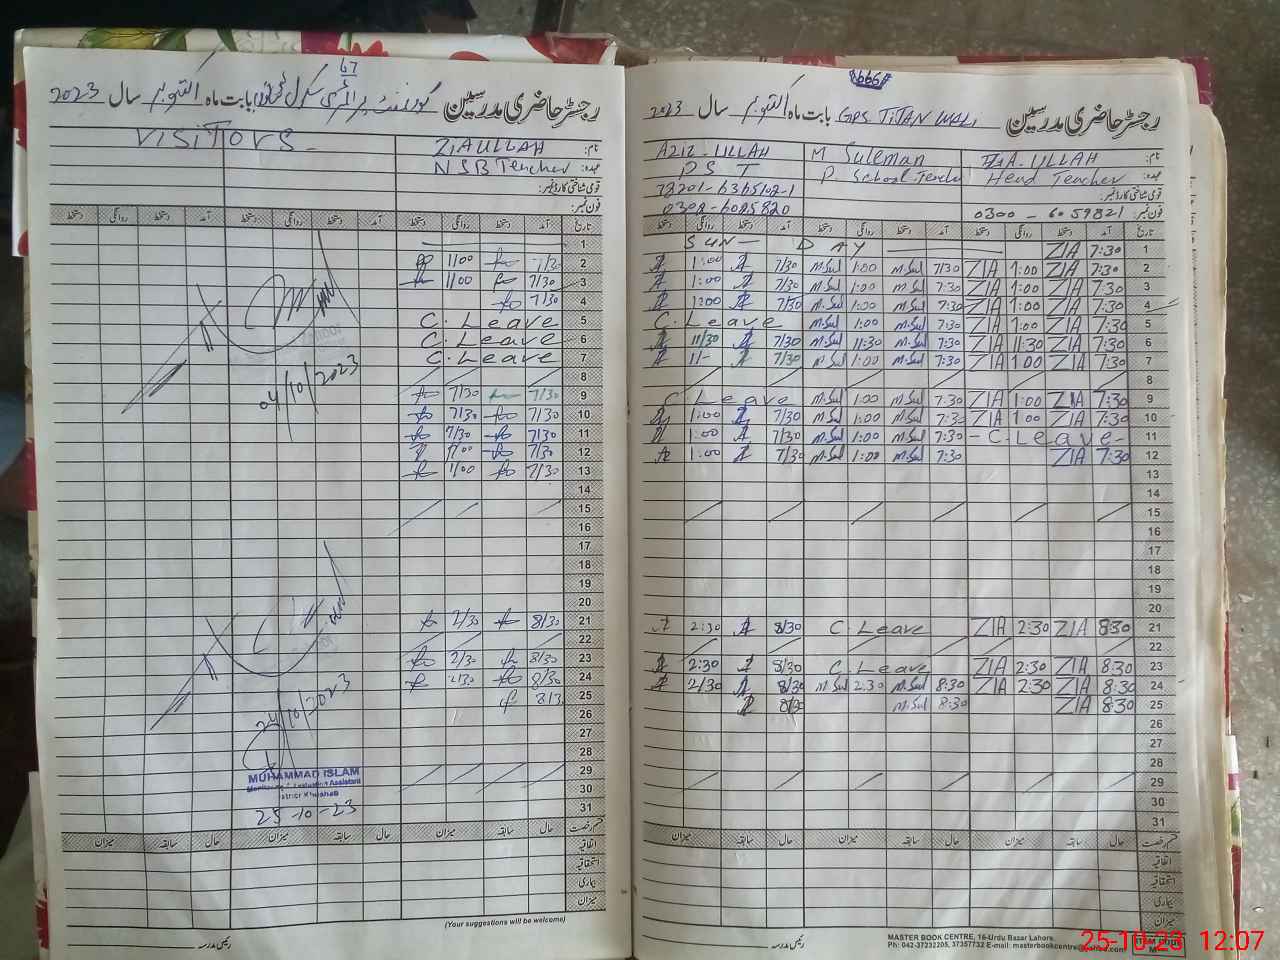 67
رجسٹر حاضری مدرسین گورنمنٹ پرائمری سکول بابت ماہ اکتوبر سال 2023
VISITORS
نام: ZIA ULLAH
عہدہ: NSB Teacher
قومی شناختی کارڈ نمبر:
فون نمبر:
تاریخ آمد دستخط روانگی دستخط آمد دستخط روانگی دستخط آمد دستخط روانگی دستخط
1
2 7/30 1/00
3 7/30 1/00
4 7/30
5 C. Leave
6 C. Leave
7 C. Leave
8
9 7/30 7/30
10 7/30 7/30
11 7/30 7/30
12 7/30 1/00
13 7/30 1/00
04/10/2023
14
15
16
17
18
19
20
21 8/30 2/30
22
23 8/30 2/30
24 8/30 2/30
25 8/3
26
27
28
29
30
31
24/10/2023
MUHAMMAD ISLAM
Monitoring & Evaluation Assistant
District Khushab
25-10-23
قسم رخصت حال سابقہ میزان حال سابقہ میزان حال سابقہ میزان
اتفاقیہ
استحقاقیہ
بیماری
میزان
(Your suggestions will be welcome)
رئیس مدرسہ
رجسٹر حاضری مدرسین GPS TITAN WALI بابت ماہ اکتوبر سال 2023
نام: ZIA ULLAH M Suleman AZIZ-ULLAH
عہدہ: Head Teacher P. School Teache P S T
قومی شناختی کارڈ نمبر: 38201-6365102-1
فون نمبر: 0300-6059821 0308-6085820
تاریخ آمد دستخط روانگی دستخط آمد دستخط روانگی دستخط آمد دستخط روانگی دستخط
SUN- DAY ZIA 7:30 1
1:00 7/30 M.Sul 1:00 M.Sul 7/30 ZIA 1:00 ZIA 7:30 2
1:00 7/30 M.Sul 1:00 M.Sul 7:30 ZIA 1:00 ZIA 7:30 3
1:00 7/30 M.Sul 1:00 M.Sul 7:30 ZIA 1:00 ZIA 7:30 4
C. Leave M.Sul 1:00 M.Sul 7:30 ZIA 1:00 ZIA 7:30 5
11/30 7/30 M.Sul 11:30 M.Sul 7:30 ZIA 11:30 ZIA 7:30 6
11/- 7/30 M.Sul 1:00 M.Sul 7:30 ZIA 1:00 ZIA 7:30 7
8
C. Leave M.Sul 1:00 M.Sul 7:30 ZIA 1:00 ZIA 7:30 9
1:00 7/30 M.Sul 1:00 M.Sul 7:30 ZIA 1:00 ZIA 7:30 10
1:00 7/30 M.Sul 1:00 M.Sul 7:30 -C. Leave- 11
1:00 7/30 M.Sul 1:00 M.Sul 7:30 ZIA 7:30 12
13
14
15
16
17
18
19
20
2:30 8/30 C. Leave ZIA 2:30 ZIA 8:30 21
22
2:30 8/30 C. Leave ZIA 2:30 ZIA 8:30 23
2/30 8/30 M.Sul 2:30 M.Sul 8:30 ZIA 2:30 ZIA 8:30 24
8/30 M.Sul 8:30 ZIA 8:30 25
26
27
28
29
30
31
قسم رخصت حال سابقہ میزان حال سابقہ میزان حال سابقہ میزان
اتفاقیہ
استحقاقیہ
بیماری
میزان
رئیس مدرسہ
MASTER BOOK CENTRE, 16-Urdu Bazar Lahore.
Ph: 042-37232205, 37357732 E-mail: masterbookcentre@
25-10-23 12:07